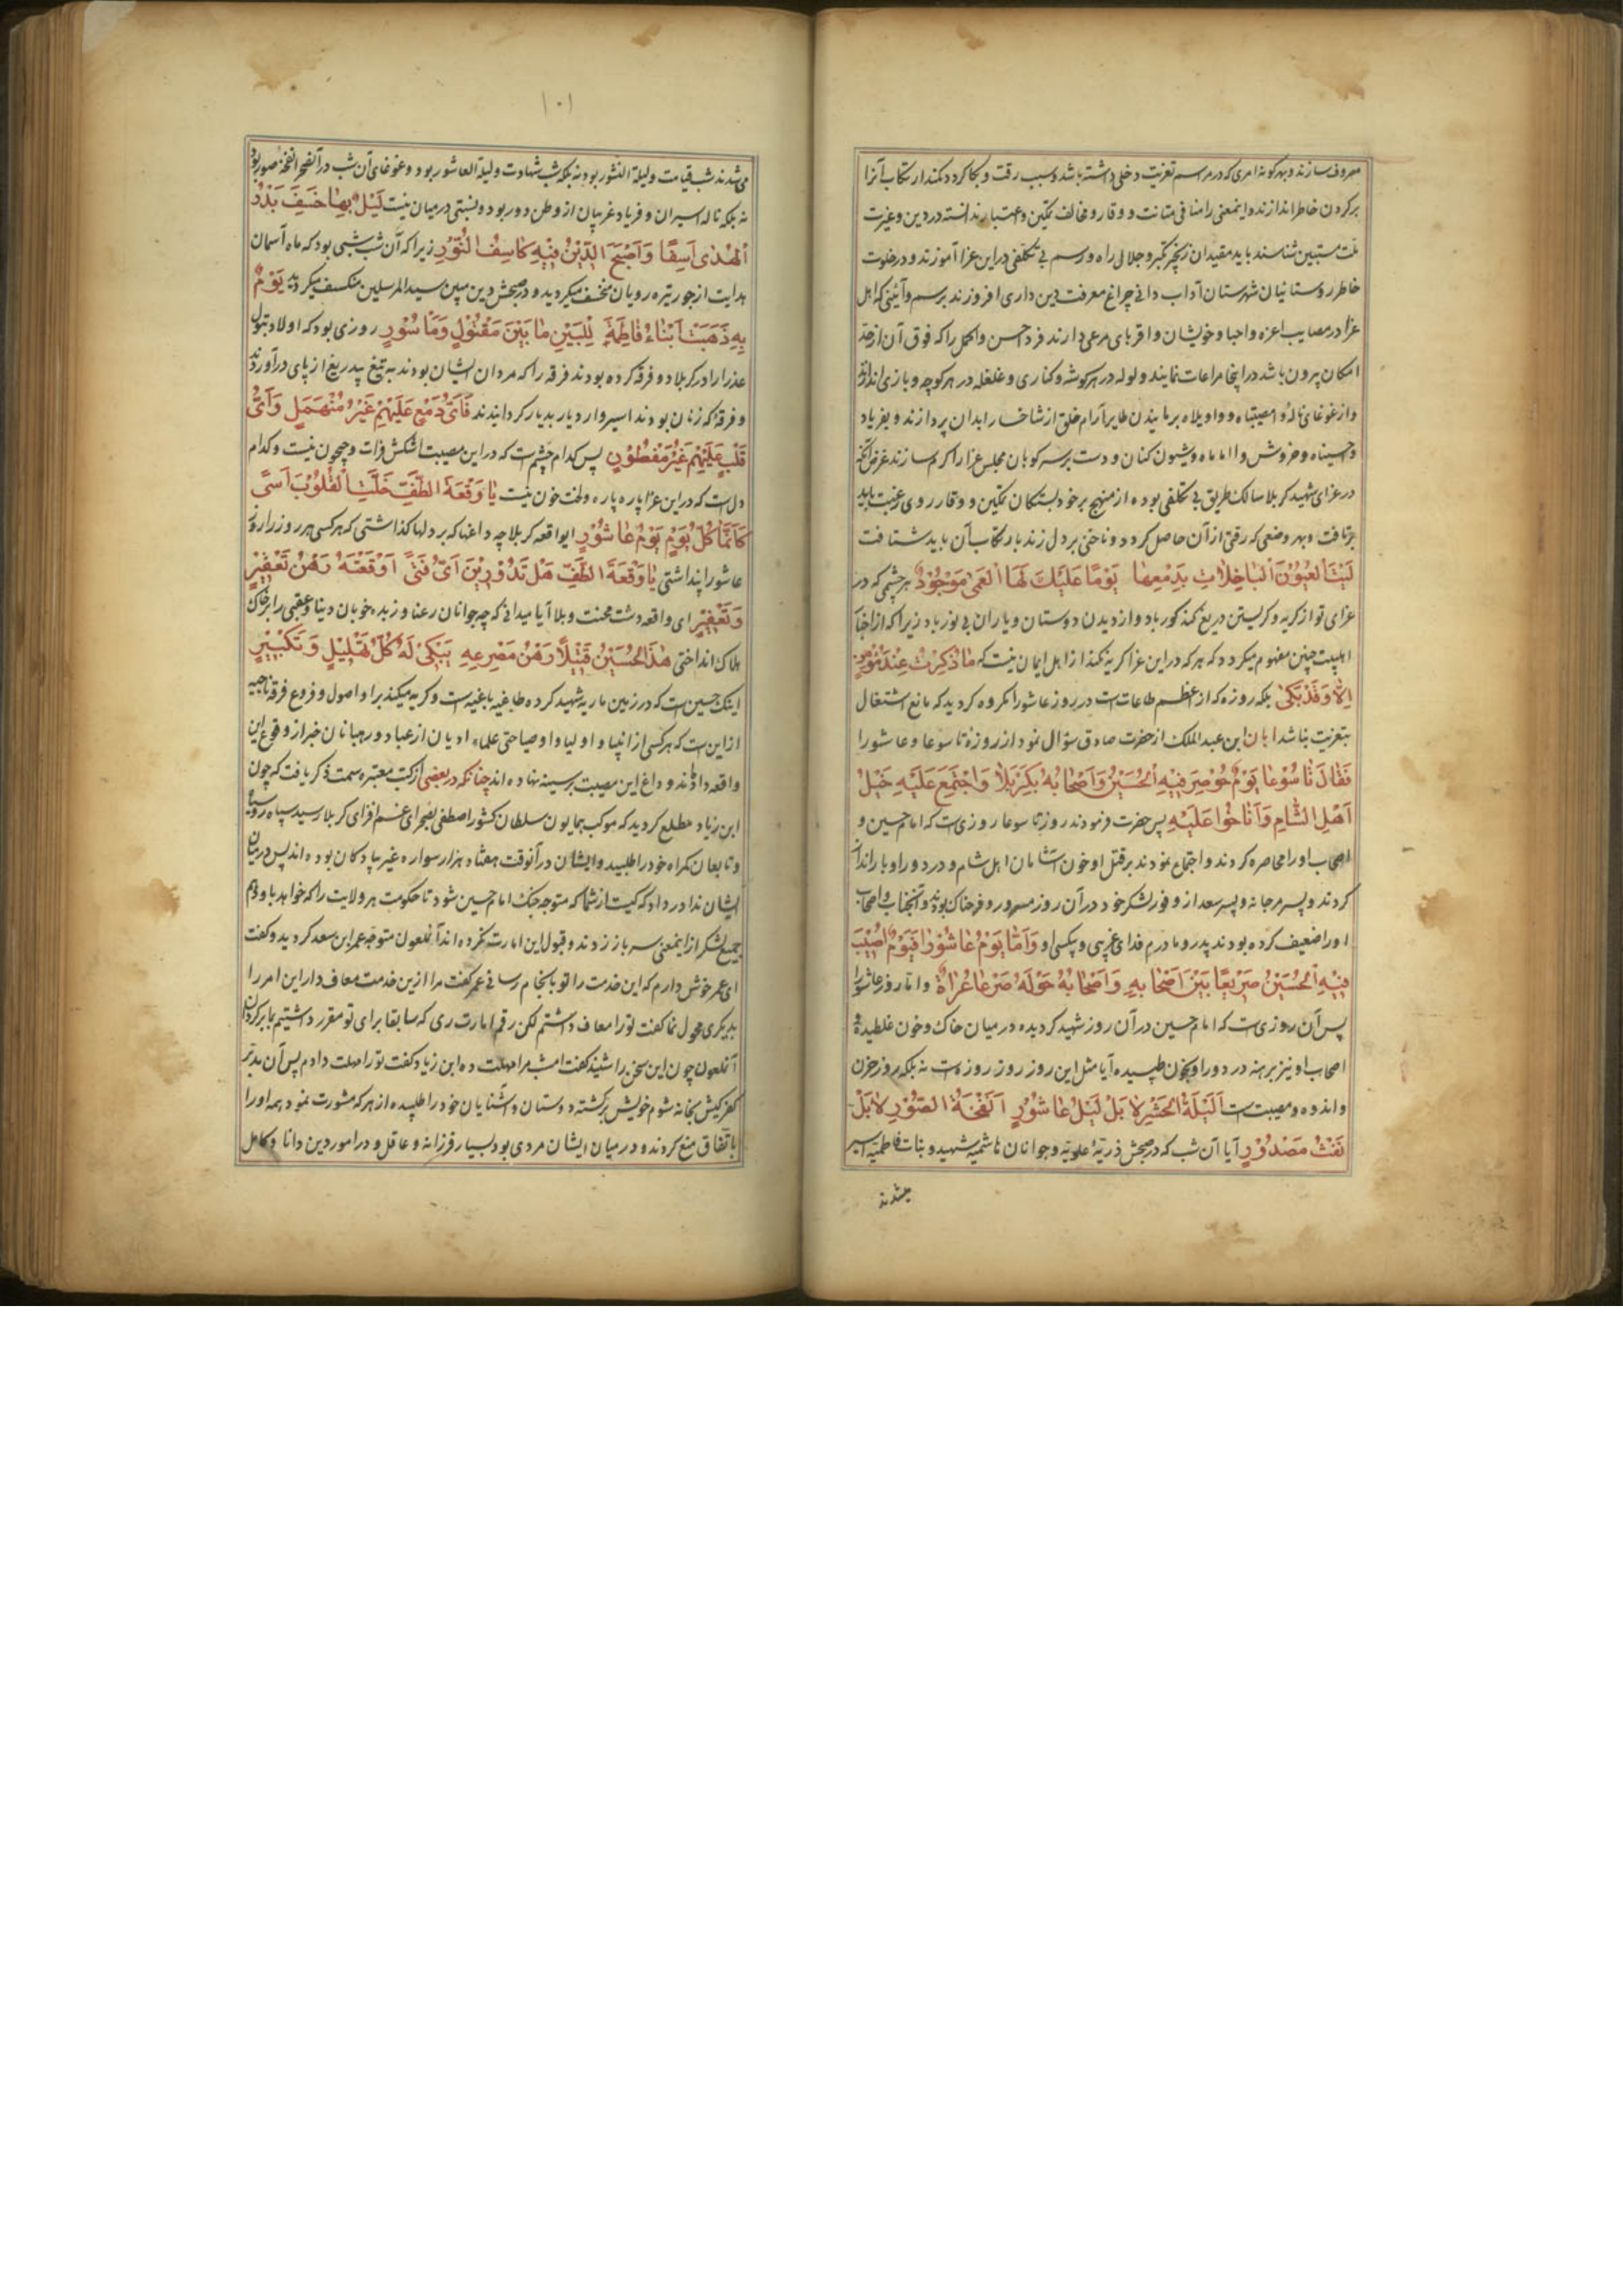 معروف سازند و بهر گونه امری که در مراسم تعزیت دخلی داشته باشد و سبب رقت و بکا گردد کنند ارتکاب آنرا
بر کردن خاطر اندازند و اینمعنی را منافی متانت و وقار و مخالف تمکین و اعتبار ندانسته در دین و غیرت
ملت مستبین شناسند باید مقیدان زنجیر تکبر و جلال راه و رسم بی تکلفی در این عزا آموزند و در خلوت
خاطر روستائیان شهرستان آداب دانی چراغ معرفت دین داری افروزند برسم و آئینی که اهل
عزا در مصایب اعزه و احبا و خویشان و اقربای مرعی دارند فرد احسن و اکمل را که فوق آن از حد
امکان بیرون باشد در اینجا مراعات نمایند و لوله در هر گوشه و کناری و غلغله در هر کوچه و بازی اندازند
و از غوغای ناله وا مصیبتاه و واویلاه برمانیدن طایر آرام خلق از شاخسار ابدان پردازند و بفریاد
وا حسیناه و خروش وا اماماه و شیون کنان و دست بر سر کوبان مجلس عزا را گرم سازند غرض آنکه
در عزای شهید کربلا سالک طریق بی تکلفی بوده از منهج بر خود بستگان تمکین و وقار روی رغبت باید
برتافت و بهر وضعی که رقتی از آن حاصل گردد و ناخنی بر دل زند بارتکاب آن باید شتافت
لَیْتَ الْعُیُوْنَ الْبَاخِلَاتِ بِدَمْعِهَا یَوْمًا عَلَیْكَ لَهَا الْعَمٰی مَوْجُوْدٌ هر چشمی که در
عزای تو از گریه و گریستن دریغ کند کور باد و از دیدن دوستان و یاران بی نور باد زیرا که از اخبار
اهلبیت چنین مفهوم میگردد که هر که در این عزا گریه نکند از اهل ایمان نیست که مَا ذُكِرْتُ عِنْدَ مُؤْمِنٍ
اِلَّا وَقَدْ بَكٰی بلکه روزه که از اعظم طاعات است در روز عاشورا مکروه گردید که مانع اشتغال
بتعزیت نباشد ابان ابن عبد الملک از حضرت صادق سؤال نمود از روزه تاسوعا و عاشورا
فَقَالَ تَاسُوْعَا یَوْمٌ حُوْصِرَ فِیْهِ الْحُسَیْنُ وَاَصْحَابُهُ بِكَرْبَلَا وَاجْتَمَعَ عَلَیْهِ خَیْلُ
اَهْلِ الشَّامِ وَاَنَاخُوْا عَلَیْهِ پس حضرت فرمودند روز تاسوعا روزیست که امام حسین و
اصحاب او را محاصره کردند و اجتماع نمودند بر قتل او خون آشامان اهل شام و در دور او بار انداز
کردند و پسر مرجانه و پسر سعد از وفور لشکر خود در آن روز مسرور و فرحناک بودند و آنجناب و اصحاب
او را ضعیف کرده بودند پدر و مادرم فدای غریبی و بیکسی او وَاَمَّا یَوْمُ عَاشُوْرَا فَیَوْمٌ اُصِیْبَ
فِیْهِ الْحُسَیْنُ صَرِیْعًا بَیْنَ اَصْحَابِهِ وَاَصْحَابُهُ حَوْلَهُ صَرْعَا عُرَاةً و اما روز عاشورا
پس آن روزیست که امام حسین در آن روز شهید گردیده در میان خاک و خون غلطیده و
اصحاب او نیز برهنه در دور او بخون طپیده آیا مثل این روز روز روزه است نه بلکه روز حزن
و اندوه و مصیبت است اَلَیْلَةُ الْحَشْرِ لَا بَلْ لَیْلُ عَاشُوْرٍ اَنَفْخَةُ الصُّوْرِ لَا بَلْ
نَفْثُ مَصْدُوْرٍ آیا آن شب که در صبحش ذریّه علویّه و جوانان هاشمیه شهید و بنات فاطمیه اسیر
میشدند
۱۰۱
میشدند شب قیامت و لیلة النشور بود نه بلکه شب شهادت و لیلة العاشور بود و غوغای آن شب در آنفجر نفخهٔ صور بود
نه بلکه ناله اسیران و فریاد غریبان از وطن دور بود و نسبتی در میان نیست لَیْلٌ بِهَا خَسَفَ بَدْرُ
الْهُدٰی اَسِفًا وَاَصْبَحَ الدِّیْنُ فِیْهِ كَاسِفُ النُّوْرِ زیرا که آن شب شبی بود که ماه آسمان
هدایت از جور تیره رویان منخسف میگردید و در صبحش دین مبین سید المرسلین منکسف میگردید یَوْمٌ
بِهِ ذَهَبَتْ اَبْنَاءُ فَاطِمَةَ لِلْبَیْنِ مَا بَیْنَ مَقْتُوْلٍ وَمَاْسُوْرٍ روزی بود که اولاد بتول
عذرا را در کربلا دو فرقه کرده بودند فرقه را که مردان ایشان بودند به تیغ بیدریغ از پای درآوردند
و فرقه که زنان بودند اسیر وار دیار بدیار گردانیدند فَاَیُّ دَمْعٍ عَلَیْهِمْ غَیْرُ مُنْهَمِلٍ وَاَیُّ
قَلْبٍ عَلَیْهِمْ غَیْرُ مَفْطُوْرٍ پس کدام چشم است که در این مصیبت اشکش فرات و جیحون نیست و کدام
دل است که در این عزا پاره پاره و لخت خون نیست یَا وَقْعَةَ الطَّفِّ خَلَّتِ الْقُلُوْبَ اَسًی
كَاَنَّمَا كُلُّ یَوْمٍ یَوْمُ عَاشُوْرٍ ای واقعه کربلا چه داغها که بر دلها گذاشتی که هر کسی هر روز را روز
عاشورا پنداشتی یَا وَقْعَةَ الطَّفِّ هَلْ تَدْرِیْنَ اَیَّ فَتًی اَوْقَعْتَهُ رَهْنَ تَعْفِیْرٍ
وَتَعْفِیْرٍ ای واقعه دشت محنت و بلا آیا میدانی که چه جوانان رعنا و زبده خوبان دنیا و عقبی را بر خاک
هلاک انداختی هٰذَا الْحُسَیْنُ قَتِیْلًا رَهْنُ مَصْرَعِهِ یَبْكِیْ لَهُ كُلُّ تَهْلِیْلٍ وَتَكْبِیْرٍ
اینک حسین است که در زمین ماریه شهید کرده طاغیه باغیه است و گریه میکند بر او اصول و فروع فرقه ناجیه
از این است که هر کسی از انبیا و اولیا و اوصیا حتی علماء ادیان از عباد و رهبانان خبر از وقوع این
واقعه داده‌اند و داغ این مصیبت بر سینه نهاده اند چنانکه در بعضی از کتب معتبره سمت ذکر یافت که چون
ابن زیاد مطلع گردید که موکب همایون سلطان کشور اصطفی بصحرای غم افزای کربلا رسید سپاه رو سیاه
و تابعان گمراه خود را طلبید و ایشان در آنوقت هفتاد هزار سواره غیر پیادگان بوده اند پس در میان
ایشان ندا در داد که کیست از شما که متوجه جنک امام حسین شود تا حکومت هر ولایت را که خواهد باو دهم
جمیع لشکر از اینمعنی سر باز زدند و قبول این امارت نکرده اند آنملعون متوجه عمر ابن سعد گردید و گفت
ای عمر خوش دارم که این خدمت را تو بانجام رسانی عمر گفت مرا ازین خدمت معاف دار این امر را
بدیگری محول نما گفت تو را معاف داشتم لکن رقم امارت ری که سابقا برای تو مقرر داشتیم بما برگردان
آنملعون چون این سخن را شنید گفت امشب مرا مهلت ده ابن زیاد گفت تو را مهلت دادم پس آن مدبر
کفر کیش بخانه شوم خویش برگشته دوستان و آشنایان خود را طلبیده از هر که مشورت نمود همه او را
باتفاق منع کردند و در میان ایشان مردی بود بسیار فرزانه و عاقل و در امور دین دانا و کامل